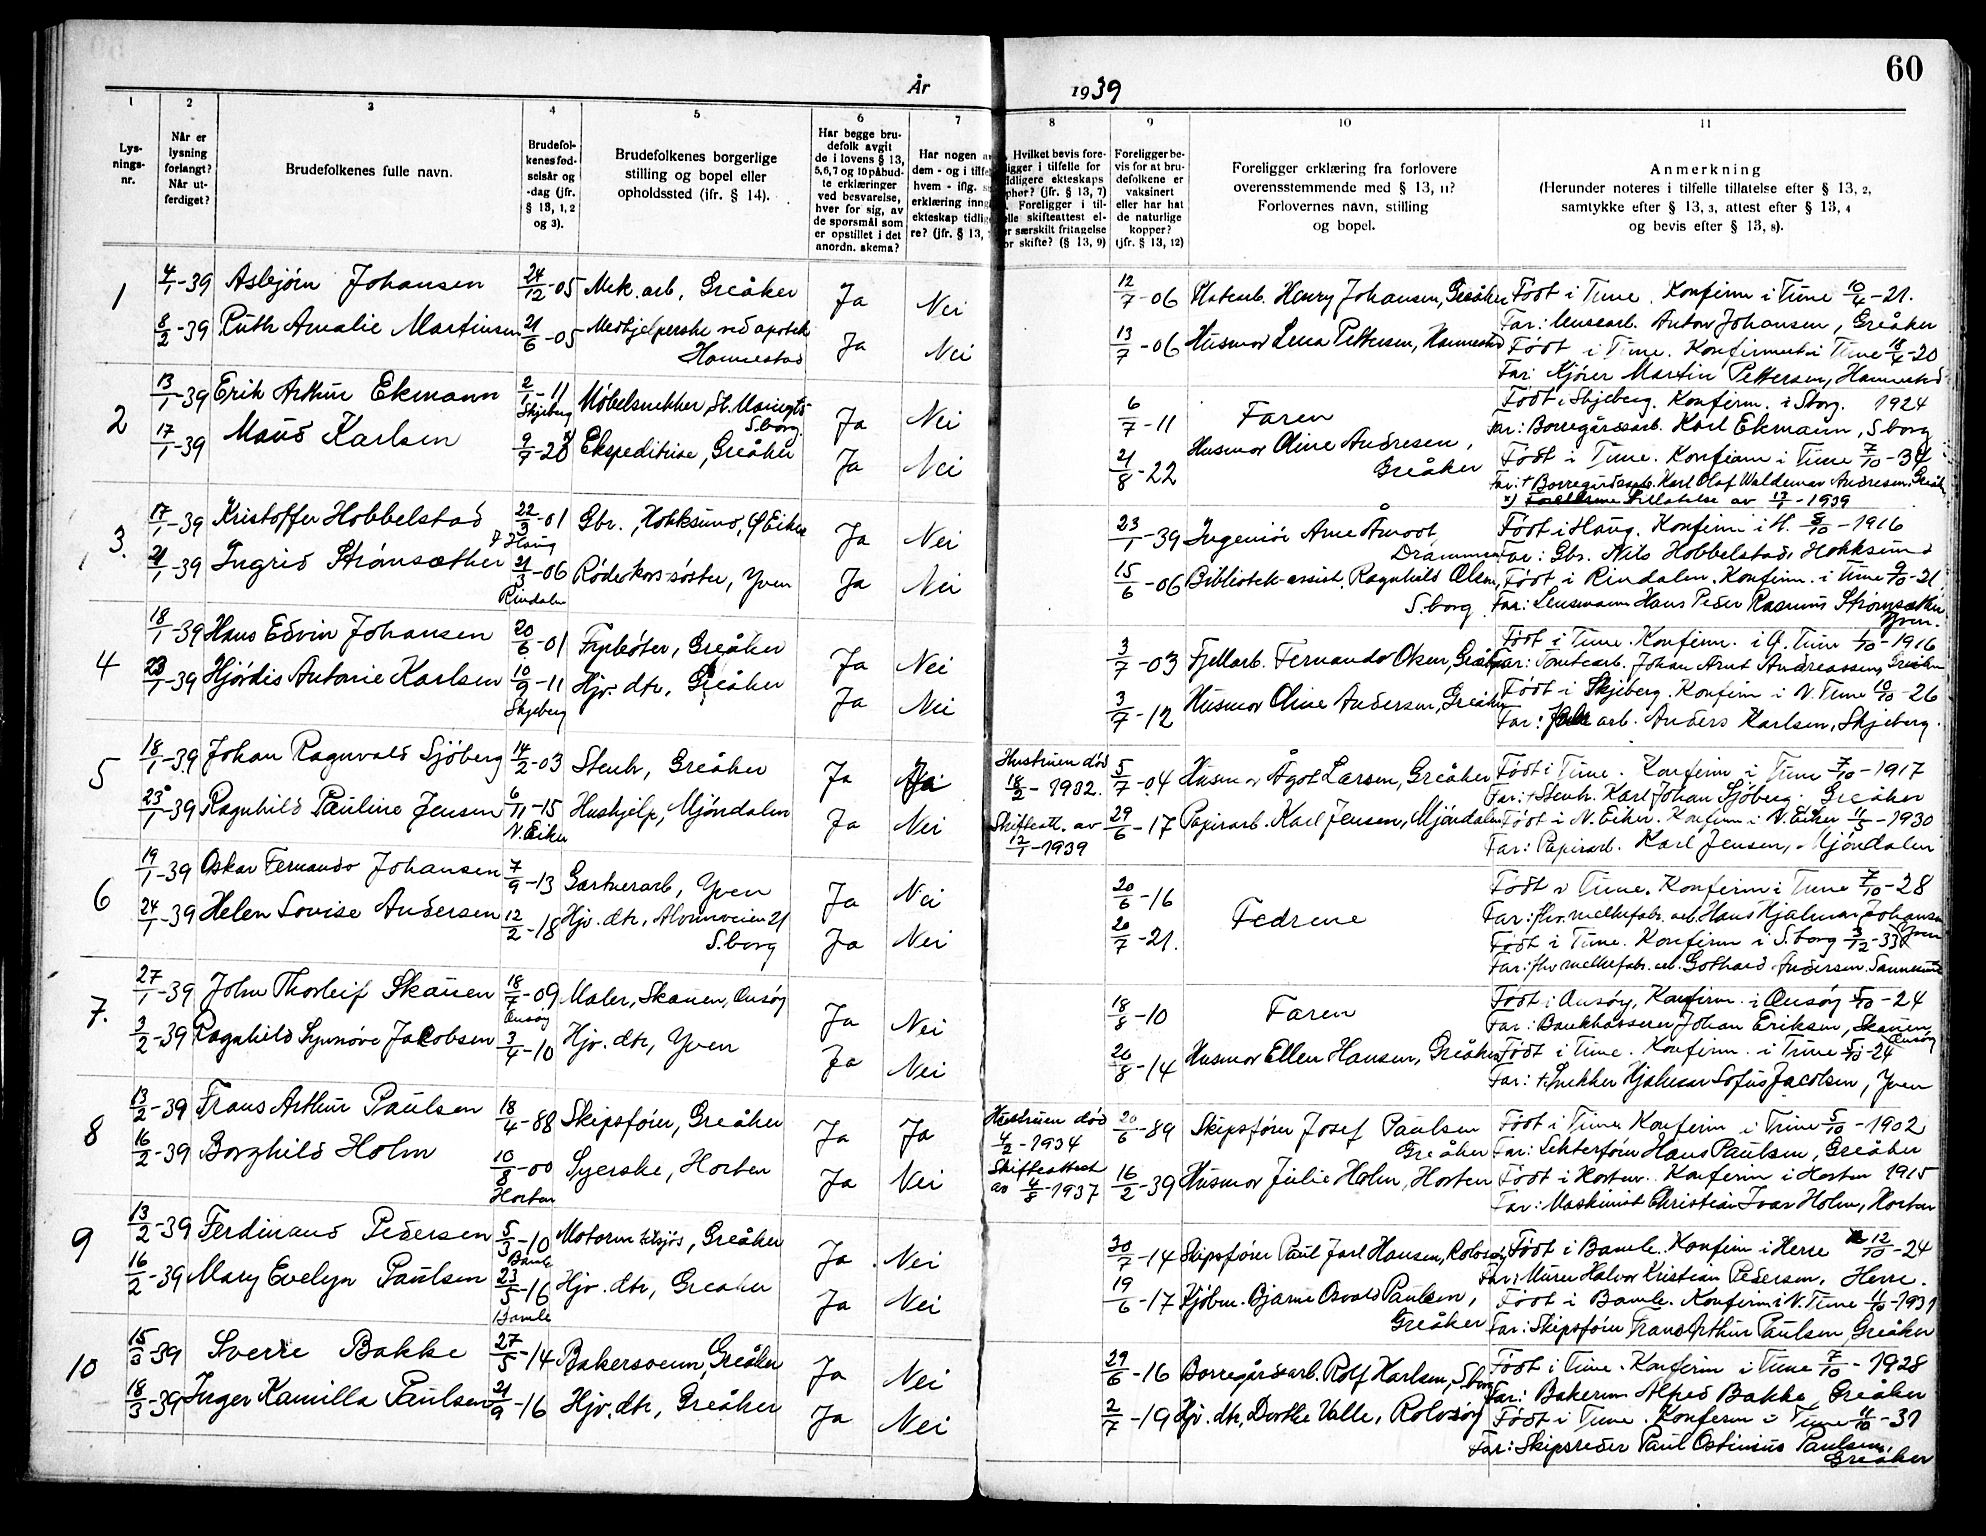 60
År 1939
1
2
3
4
5
6
7
8
9
10
11
Lys-
nings-
nr.
Når er
lysning
forlangt?
Når ut-
ferdiget?
Brudefolkenes fulle navn.
Brudefol-
kenes fød-
selsår og
-dag (jfr.
§ 13, 1, 2
og 3).
Brudefolkenes borgerlige
stilling og bopel eller
opholdssted (ifr. § 14).
Har begge bru-
defolk avgit
de i lovens § 13,
5,6,7 og 10 påbud-
te erklæringer
ved besvarelse,
hver for sig, av
de spørsmål som
er opstillet i det
anordn. skema?
Har nogen a
dem - og i tilfe
hvem - iflg.
erklæring inng
ekteskap tidlig
re? (jfr. § 13,
Hvilket bevis fore-
ligger i tilfelle for
idligere ekteskaps
opher? (jfr. § 13, 7)
Foreligger i til-
elle skifteattest el-
er særskilt fritagelse
or skifte? (§ 13, 9)
Foreligger be-
vis for at bru-
defolkene er
vaksinert
eller har hat
de naturlige
kopper?
(jfr. § 13, 12)
Foreligger erklæring fra forlovere
overensstemmende med § 13, 11?
Forlovernes navn, stilling
og bopel.
Anmerkning
(Herunder noteres i tilfelle tillatelse efter § 13, 2,
samtykke efter § 13, 3, attest efter § 13, 4
og bevis efter § 13, 8).
1
4/1-39 Asbjørn Johansen 24/12-05 Mek. arb, Greåker Ja Nei 12/7-06 Henry Johansen, Greåker Født i Tune. Konfirm i Tune 10/4-21.
Far: Anton Johansen, Greåker
8/2-39 Ruth Amalie Martinsen 21/6-05 Medhjelperske ved apotek Hannestad Ja Nei 13/7-06 Husmor Lena Pettersen, Hannestad Født i Tune. Konfirmert i Tune 18/4-20
Far: Kjører Martin Pettersen, Hannestad
2
13/1-39 Erik Arthur Ekmann 2/1-11 Skjeberg Møbelsnekker, St. Mariegt. S.borg. Ja Nei 6/7-11 Faren Født i Skjeberg. Konfirm. i Sborg. 1924
Far: Borregårdsarb. Karl Ekmann, S.borg
17/1-39 Maud Karlsen Ekspeditrise, Greåker Ja Nei 21/8-22 Husmor Oline Andresen, Greåker Født i Tune. Konfirm i Tune 7/10-34
Far: + Borregårdsarb. Karl Olaf Waldemar Andresen, Greåk
tillatelse av 13/1-1939
3.
17/1-39 Kristoffer Hobbelstad 22/3-01 Haug Gbr., Hokksund, Ø Eiker Ja Nei 23/1-39 Ingeniør Arne Åmodt, Drammen Født i Haug. Konfirm i H. 8/10-1916
Far: Gbr. Nils Hobbelstad, Hokksund
21/1-39 Ingrid Strømsæther 21/3-06 Rindalen Rødekors-søster, Yven Ja Nei 15/6-06 Bibliotek-assist. Ragnhild Olsen, S.borg Født i Rindalen. Konfirm. i Tune 9/10-21
Far: Lensmann Hans Peder Rasmus Strømsæther Yven.
4
18/1-39 Hans Edvin Johansen 20/6-01 Fyrbøter, Greåker Ja Nei 3/7-03 Fjellarb. Fernando Olsen, Greåker Født i Tune. Konfirm. i Ø. Tune 1/10-1916
Far: Tomtearb. Johan Arnt Andreassen, Greåker
23/1-39 Hjørdis Antonie Karlsen 10/9-11 Skjeberg Hjv. dtr, Greåker Ja Nei 3/7-12 Husmor Oline Andersen, Greåker Født i Skjeberg. Konfirm i N. Tune 10/10-26
Far: arb. Anders Karlsen, Skjeberg.
5
18/1-39 Johan Ragnvald Sjöberg 14/2-03 Stenh, Greåker Ja Ja Hustruen død 18/2-1932. 5/7-04 Husmor Ågot Larsen, Greåker Født i Tune. Konfirm i Tune 7/10-1917
Far: + Stenh. Karl Johan Sjöberg. Greåker
23/1-39 Ragnhild Pauline Jensen 6/11-15 N. Eiker Hushjelp, Mjöndalen Ja Nei Skifteatt. av 12/1-1939 29/6-17 Papirarb. Karl Jensen, Mjöndalen Født i N. Eiker. Konfirm i N. Eiker 11/5-1930
Far: Papirarb. Karl Jensen, Mjöndalen
6
19/1-39 Oskar Fernando Johansen 7/9-13 Gartnerarb, Yven Ja Nei 20/6-16 Fedrene Født i Tune. Konfirm i Tune 7/10-28
Far: fhv. mellefabr. arb. Hans Hjalmar Johansen Yven
24/1-39 Helen Lovise Andersen 12/2-18 Hjv. dtr, Alvimveien 21 S.borg Ja Nei 20/7-21. Født i Tune. Konfirm i S.borg 3/12-33
Far: fhv mellefabr. arb. Gothard Andersen
7.
27/1-39 John Thorleif Skauen 18/7-09 Onsøy Maler, Skauen, Onsøy Ja Nei 18/8-10 Faren Født i Onsøy, Konfirm. i Onsøy 5/10-24
Far: Bankkasserer Johan Eriksen, Skauen Onsøy
3/2-39 Ragnhild Synnøve Jacobsen 3/4-10 Hjv. dtr, Yven Ja Nei 20/8-14 Husmor Ellen Hansen, Greåker Født i Tune. Konfirm. i Tune 5/10-24
Far: + Snekker Hjalmar Sofus Jacobsen, Yven
8
13/2-39 Frans Arthur Paulsen 18/4-88 Skipsfører, Greåker Ja Ja Hustruen død 4/2-1934 20/6-89 Skipsfører Josef Paulsen Greåker Født i Tune Konfirm i Tune 5/10-1902
Far: Lekterfører Hans Paulsen, Greåker
16/2-39 Borghild Holm 10/8-00 Horten Syerske, Horten Ja Nei Skifteattest av 4/8-1937 16/2-39 Husmor Julie Holm, Horten Født i Horten. Konfirm i Horten 1915
Far: Maskinist Christian Ivar Holm, Horten
9
13/2-39 Ferdinand Pedersen 5/3-10 Bamle Motorm. tilsjøs, Greåker Ja Nei 30/7-14 Skipsfører Paul Jarl Hansen, Rolvsøy Født i Bamle. Konfirm i Herre 12/10-24
Far: Murer Halvor Kristian Pedersen, Herre.
16/2-39 Mary Evelyn Paulsen 23/5-16 Bamle Hjv. dtr, Greåker Ja Nei 19/6-17 Kjöbm. Bjarne Osvald Paulsen, Greåker Født i Bamle. Konfirm i N. Tune 11/10-1931
Far: Skipsfører Frans Arthur Paulsen Greåker
10
15/3-39 Sverre Bakke 27/5-14 Bakersvenn, Greåker Ja Nei 29/6-16 Borregårdsarb. Rolf Karlsen, S.borg Født i Tune. Konfirm i Tune 7/10-1928
Far: Bakerm Alfred Bakke, Greåker
18/3-39 Inger Kamilla Paulsen 21/9-16 Hjv. dtr, Greåker Ja Nei 2/7-19 Hjv. dtr, Dorthe Valle, Rolvsøy Født i Tune. Konfirm i Tune 11/10-31
Far: Skipsreder Paul Ostinius Paulsen, Greåker